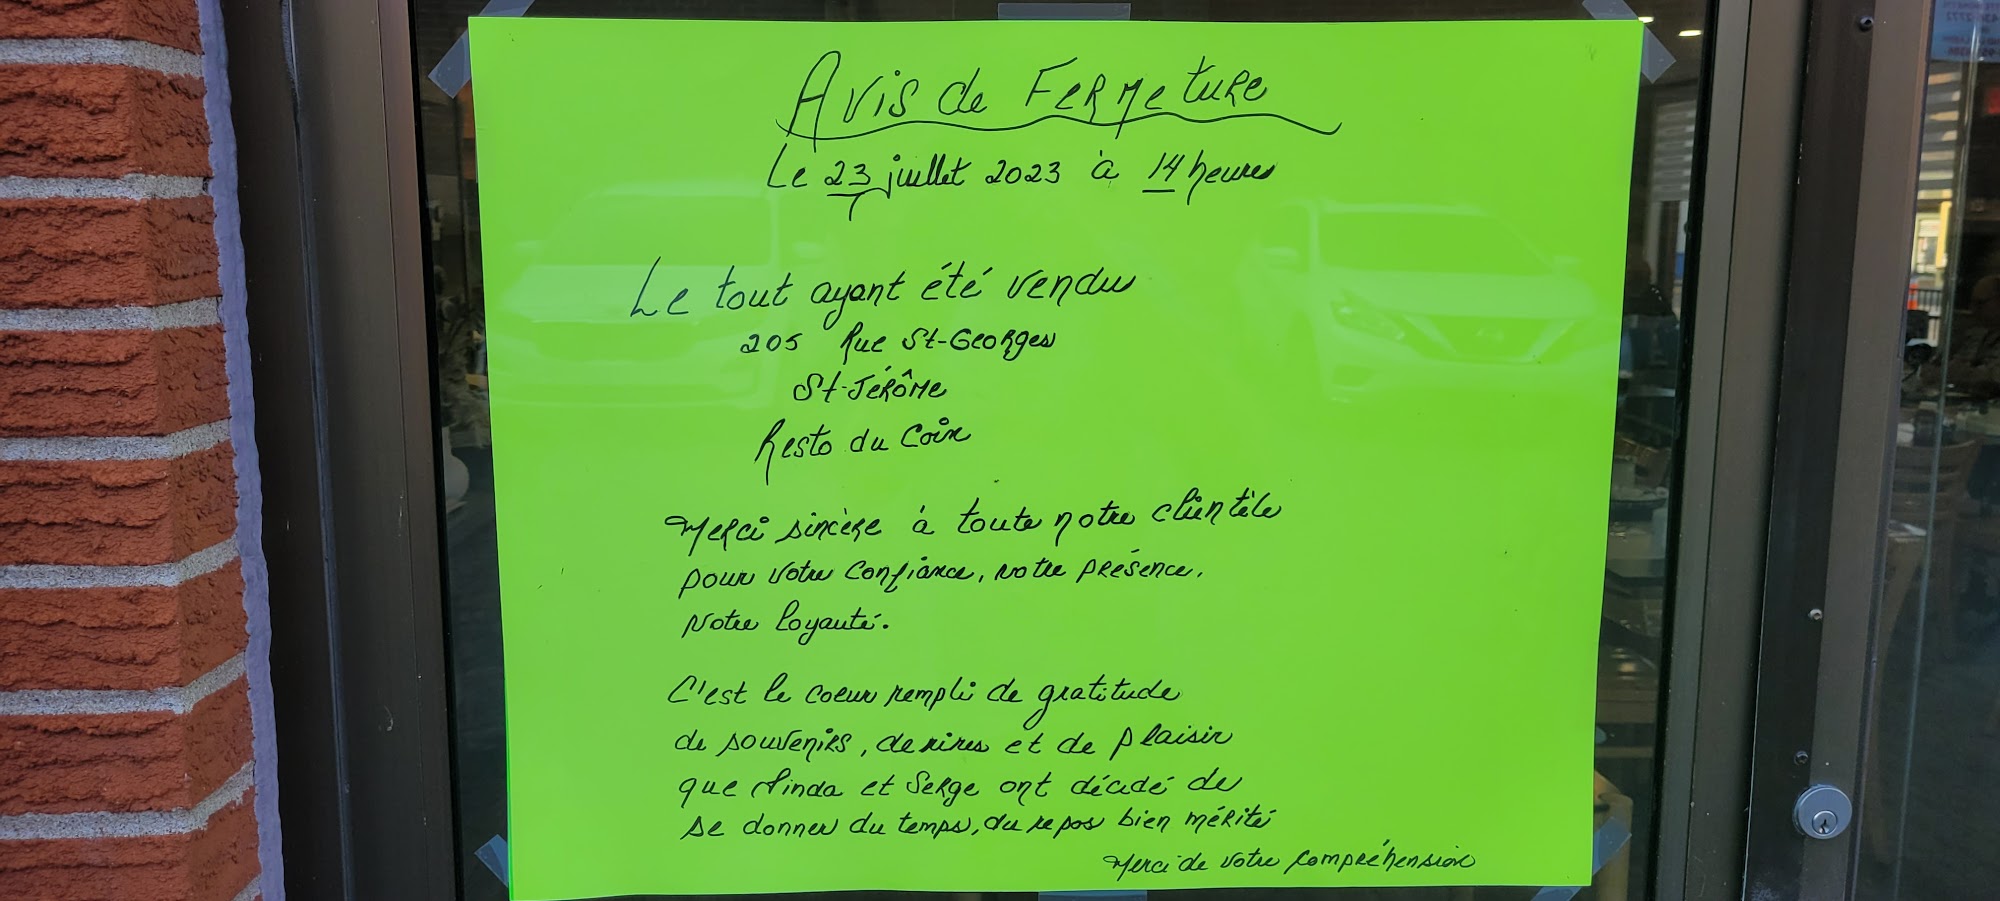 Avis de Fermeture
Le 23 juillet 2023 à 14 heures
Le tout ayant été vendu
205 Rue St-Georges
St-Jérôme
Resto du Coin
Merci sincère à toute notre clientèle
pour votre confiance, votre présence,
votre loyauté.
C'est le coeur rempli de gratitude
de souvenirs, de rires et de plaisir
que Linda et Serge ont décidé de
se donner du temps, du repos bien mérité
Merci de votre compréhension